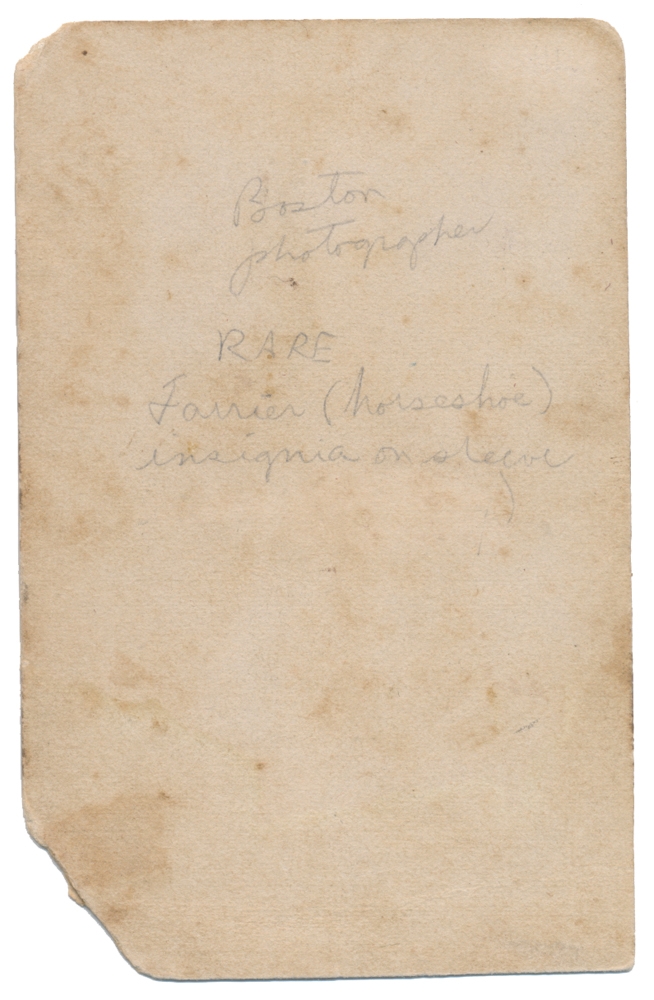 Boston
photographer
RARE
Farrier (horseshoe)
insignia on sleeve